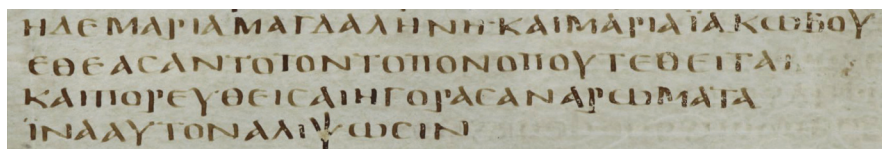 ΗΔΕΜΑΡΙΑΜΑΓΔΑΛΗΝΗ·ΚΑΙΜΑΡΙΑΪΑΚΩΒΟΥ
ΕΘΕΑСΑΝΤΟΤΟΝΤΟΠΟΝΟΠΟΥΤΕΘΕΙΤΑΙ
ΚΑΙΠΟΡΕΥΘΕΙСΑΙΗΓΟΡΑСΑΝΑΡΩΜΑΤΑ
ΪΝΑΑΥΤΟΝΑΛΙΨΩСΙΝ